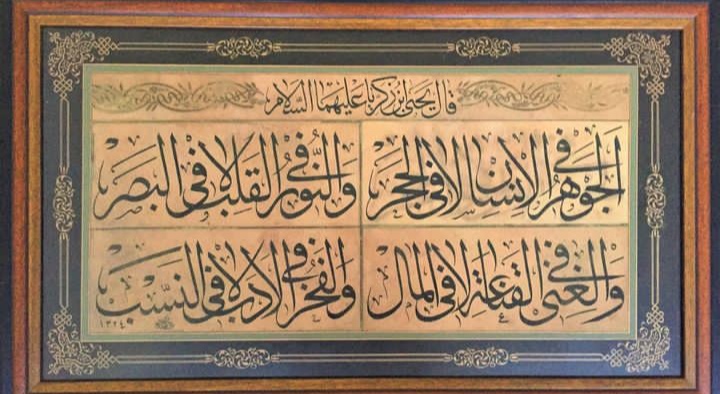 قال يحيى ابن زكريا عليهما السلام
الجوهر في الإنسان لا في الحجر
والنور في القلب لا في البصر
والغنى في القناعة لا في المال
والفخر في الأدب لا في النسب